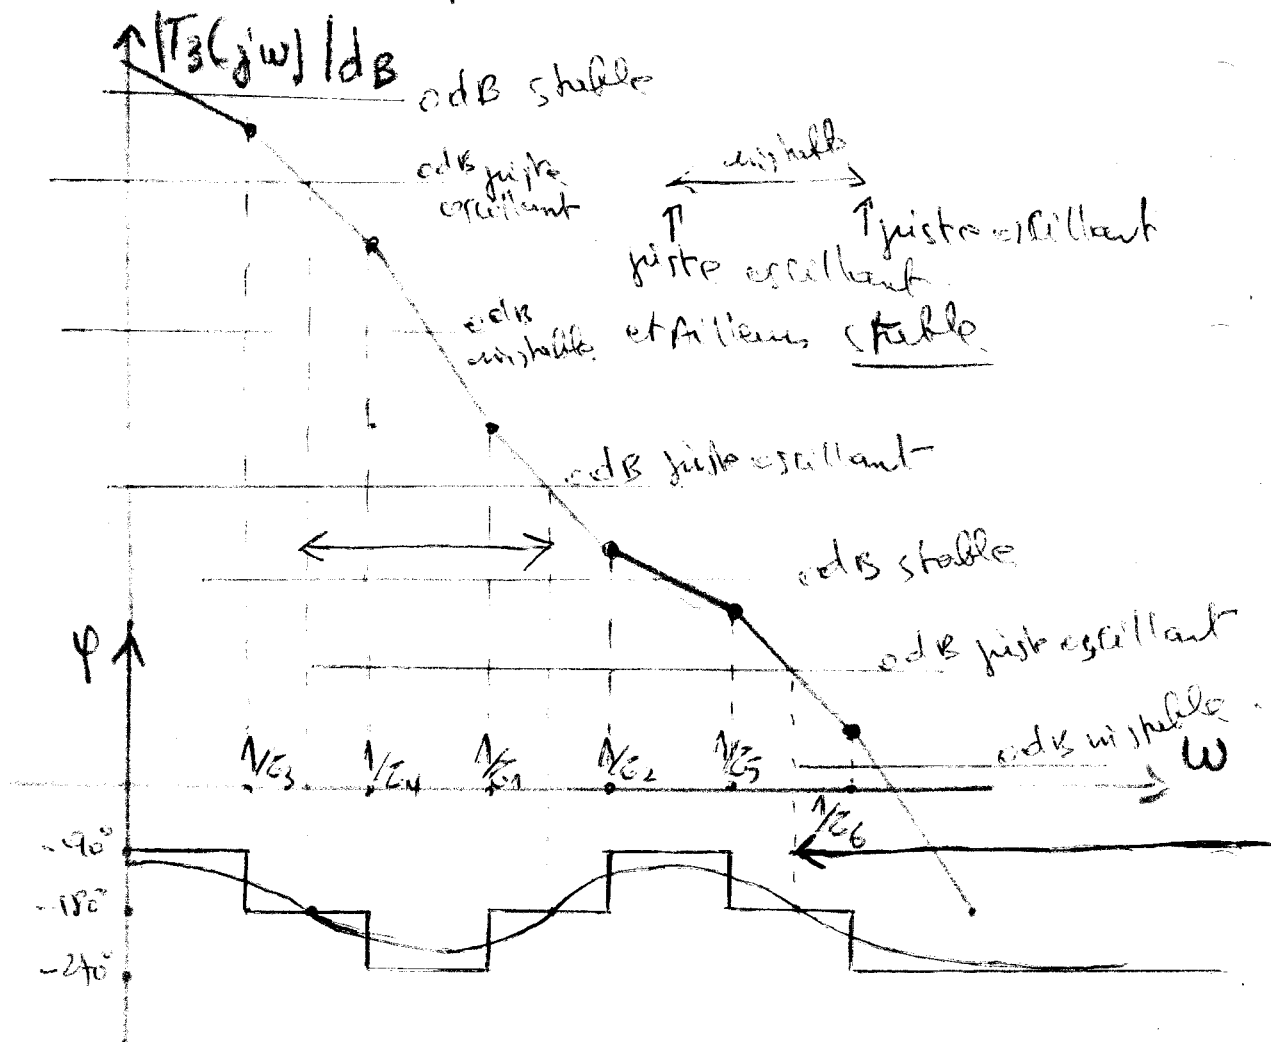 |T₃(jω)|dB
odB stable
odB juste
oscillant
instable
juste oscillant
juste oscillant
odB
instable
et ailleurs stable
odB juste oscillant
odB stable
φ
odB juste oscillant
odB instable
ω
1/τ₃ 1/τ₄ 1/τ₁ 1/τ₂ 1/τ₅
1/τ₆
-90°
-180°
-270°